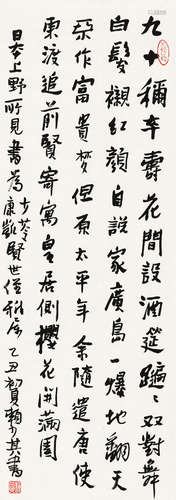 九十稱卒壽花間設酒筵蹁〻双對舞
白髮襯紅顏自說家廣島一爆地翻天
作富貴夢但原太平年余隨遣唐使
東渡追前賢寄寓皇居側櫻花開滿園
日本上野所見書為康凱賢世侄雅屬乙丑初夏賴少其書